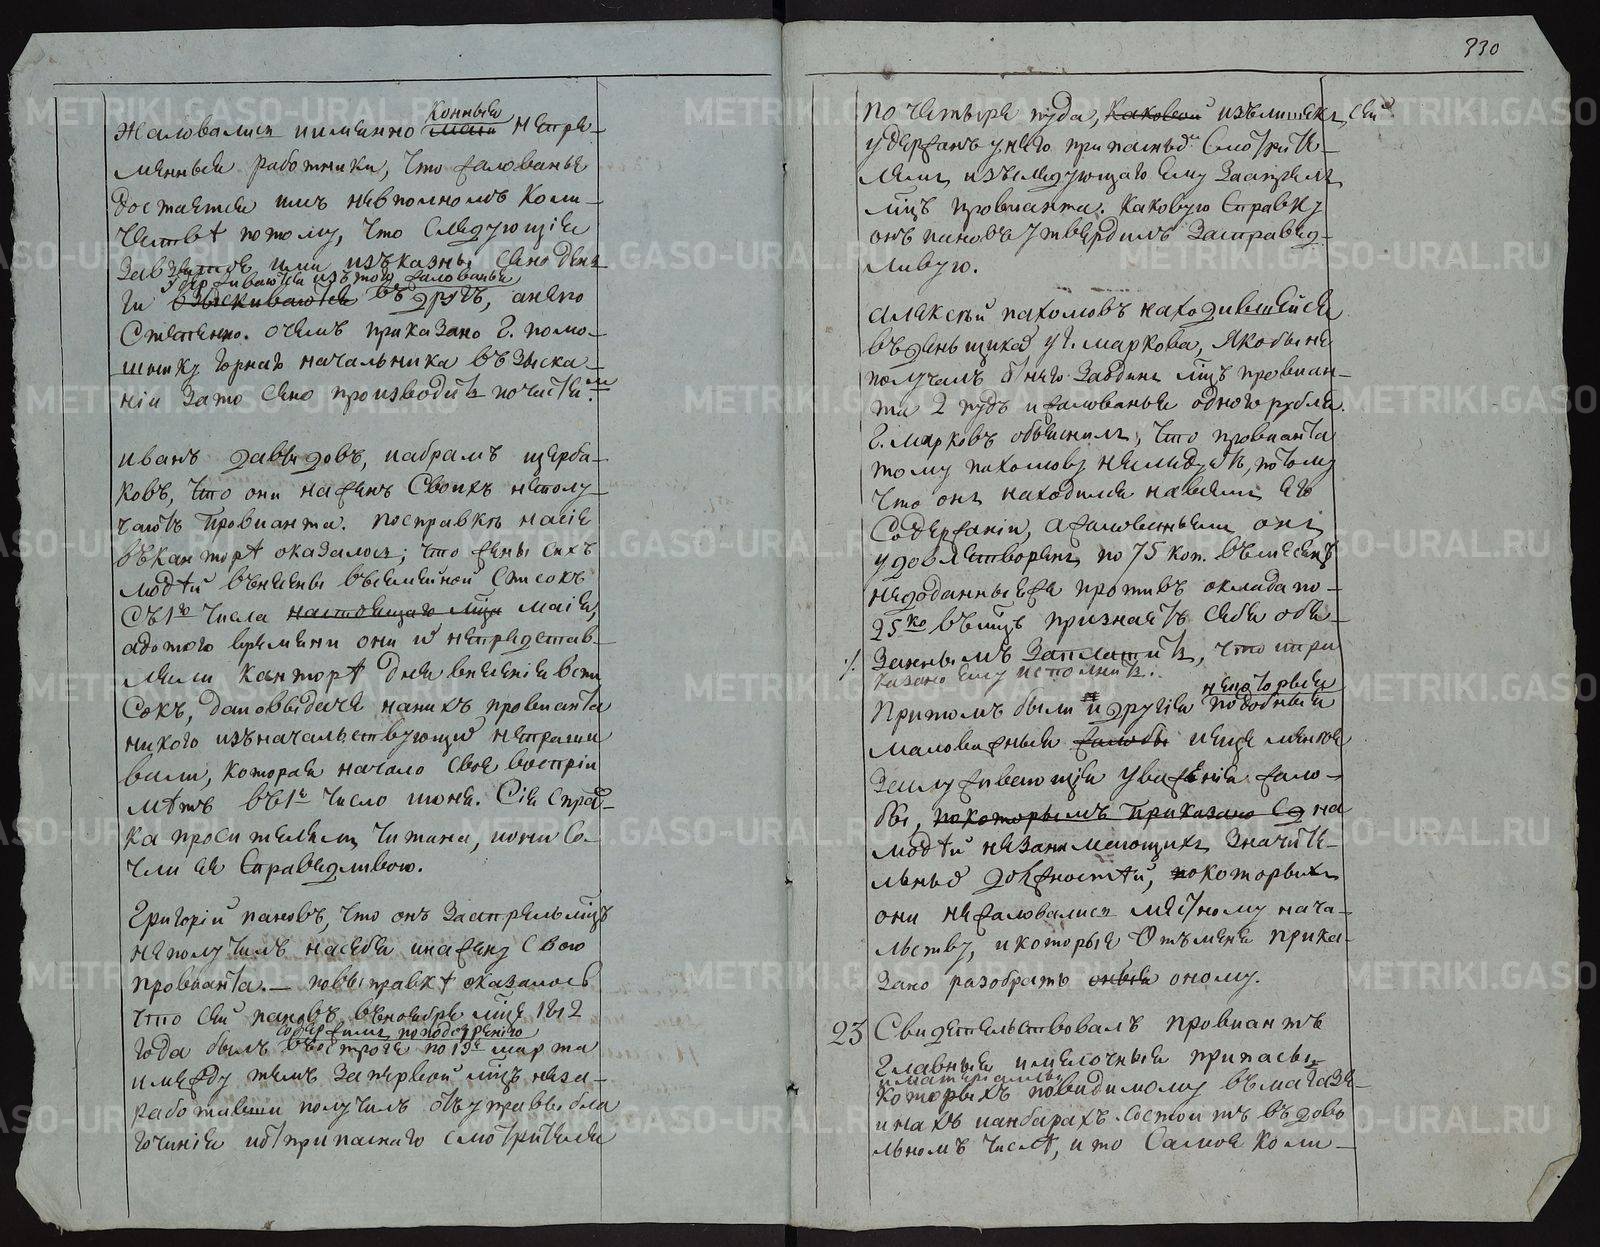 330
жаловались имянно конные непре-
менные работники, что жалованье
достается имъ невполномъ коли-
честве потому, что следующiе
за взятое ими изъ казны сено день
ги удерживаются изъ того жалованья
взыскиваются въ другъ, а не по
степенно. о чемъ приказано г. помо-
щнику горнаго начальника взыска-
нiи за то сено производить по частямъ.
иванъ давыдовъ, и абрамъ щерба-
ковъ, что они на женъ своихъ неполу-
чаютъ провианта. по справке на сiе
въ канторе оказалось; что жены сихъ
людей внесены въ семейной список
съ 1го числа настоящаго мца маiя,
а до того времени они и непредстав-
ляли канторе для внесенiя в спи
сокъ, да и о выдаче на них провианта
никого изъ начальствующих непроси
ли, которая начало свое воспрiи
метъ въ 1е число июня. Сiя справ-
ка просителям читана, и они со-
чли ее справедливою.
Григорiй пановъ, что онъ за апрель мцъ
неполучилъ на себя и на жену свою
провианта. — по выправке оказалось
что сей пановъ въ ноябре мце 1812
содержим по подозренiю
года былъ въ остроге по 19е марта
и между темъ за первой мцъ неза-
работавши получилъ отъ управы бла
гочинiя и от припаснаго смотрителя
по четыре пуда, каковой излишекъ сей
удержанъ у него припасным смотрите-
лемъ изъ следующаго ему за апрель
мцъ провианта. каковую справку
онъ пановъ утвердилъ за справед-
ливую.
алексей пахомовъ находившейся
въ деньщиках у г. маркова, якобы не
получалъ от него за один мцъ провиан-
та 2 пудъ и жалованья одного рубля.
г. марковъ объяснил, что провианта
тому пахомову неследует, потому
что онъ находился на всемъ его
содержанiи, а жалованьем онъ
удовлетворенъ по 75 коп. въ месецъ
недоданные же противъ оклада по-
25 ко въ мцъ признаетъ себя обя-
занымъ заплатить, что и при
казано ему исполнить.
При томъ были и другiя некоторыя подобные
маловажныя жалобы и еще менее
заслуживающiя уваженiя жало-
бы, по которымъ приказано на
людей незанимающихъ значите-
льных должностей, по которыхъ
они нежаловались местному нача-
льству, и которые от меня прика-
зано разобрать оные оному.
23 Свидетельствовалъ провиантъ
главные и мелочные припасы
и матерiалы
которыхъ по видимому въ магазе-
инахъ и анбарахъ состоитъ въ дово
льномъ числе, и то самое коли-